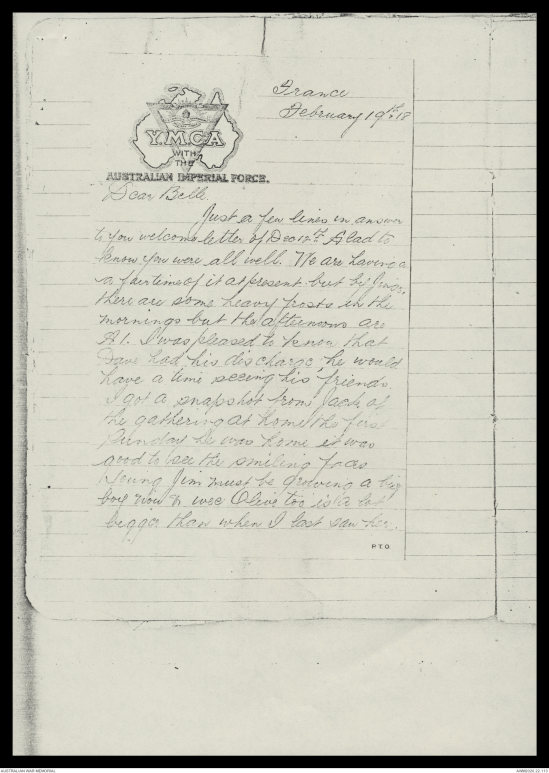 France
February 19th 18
Y.M.C.A
WITH
THE
AUSTRALIAN IMPERIAL FORCE.
Dear Belle
Just a few lines in answer
to you welcome letter of Dec 12th Glad to
know you were all well. We are having a
a fair time of it at present but by
there are some heavy frosts in the
mornings but the afternoons are
A1. I was pleased to know that
Dave had his discharge, he would
have a time seeing his friends
I got a snapshot from Jack of
the gathering at home the first
Sunday he was home it was
good to see the smiling
Young Jim must be growing a big
boy now & wee Olive too is a lot
bigger than when I last saw her.
P.T.O.
AUSTRALIAN WAR MEMORIAL